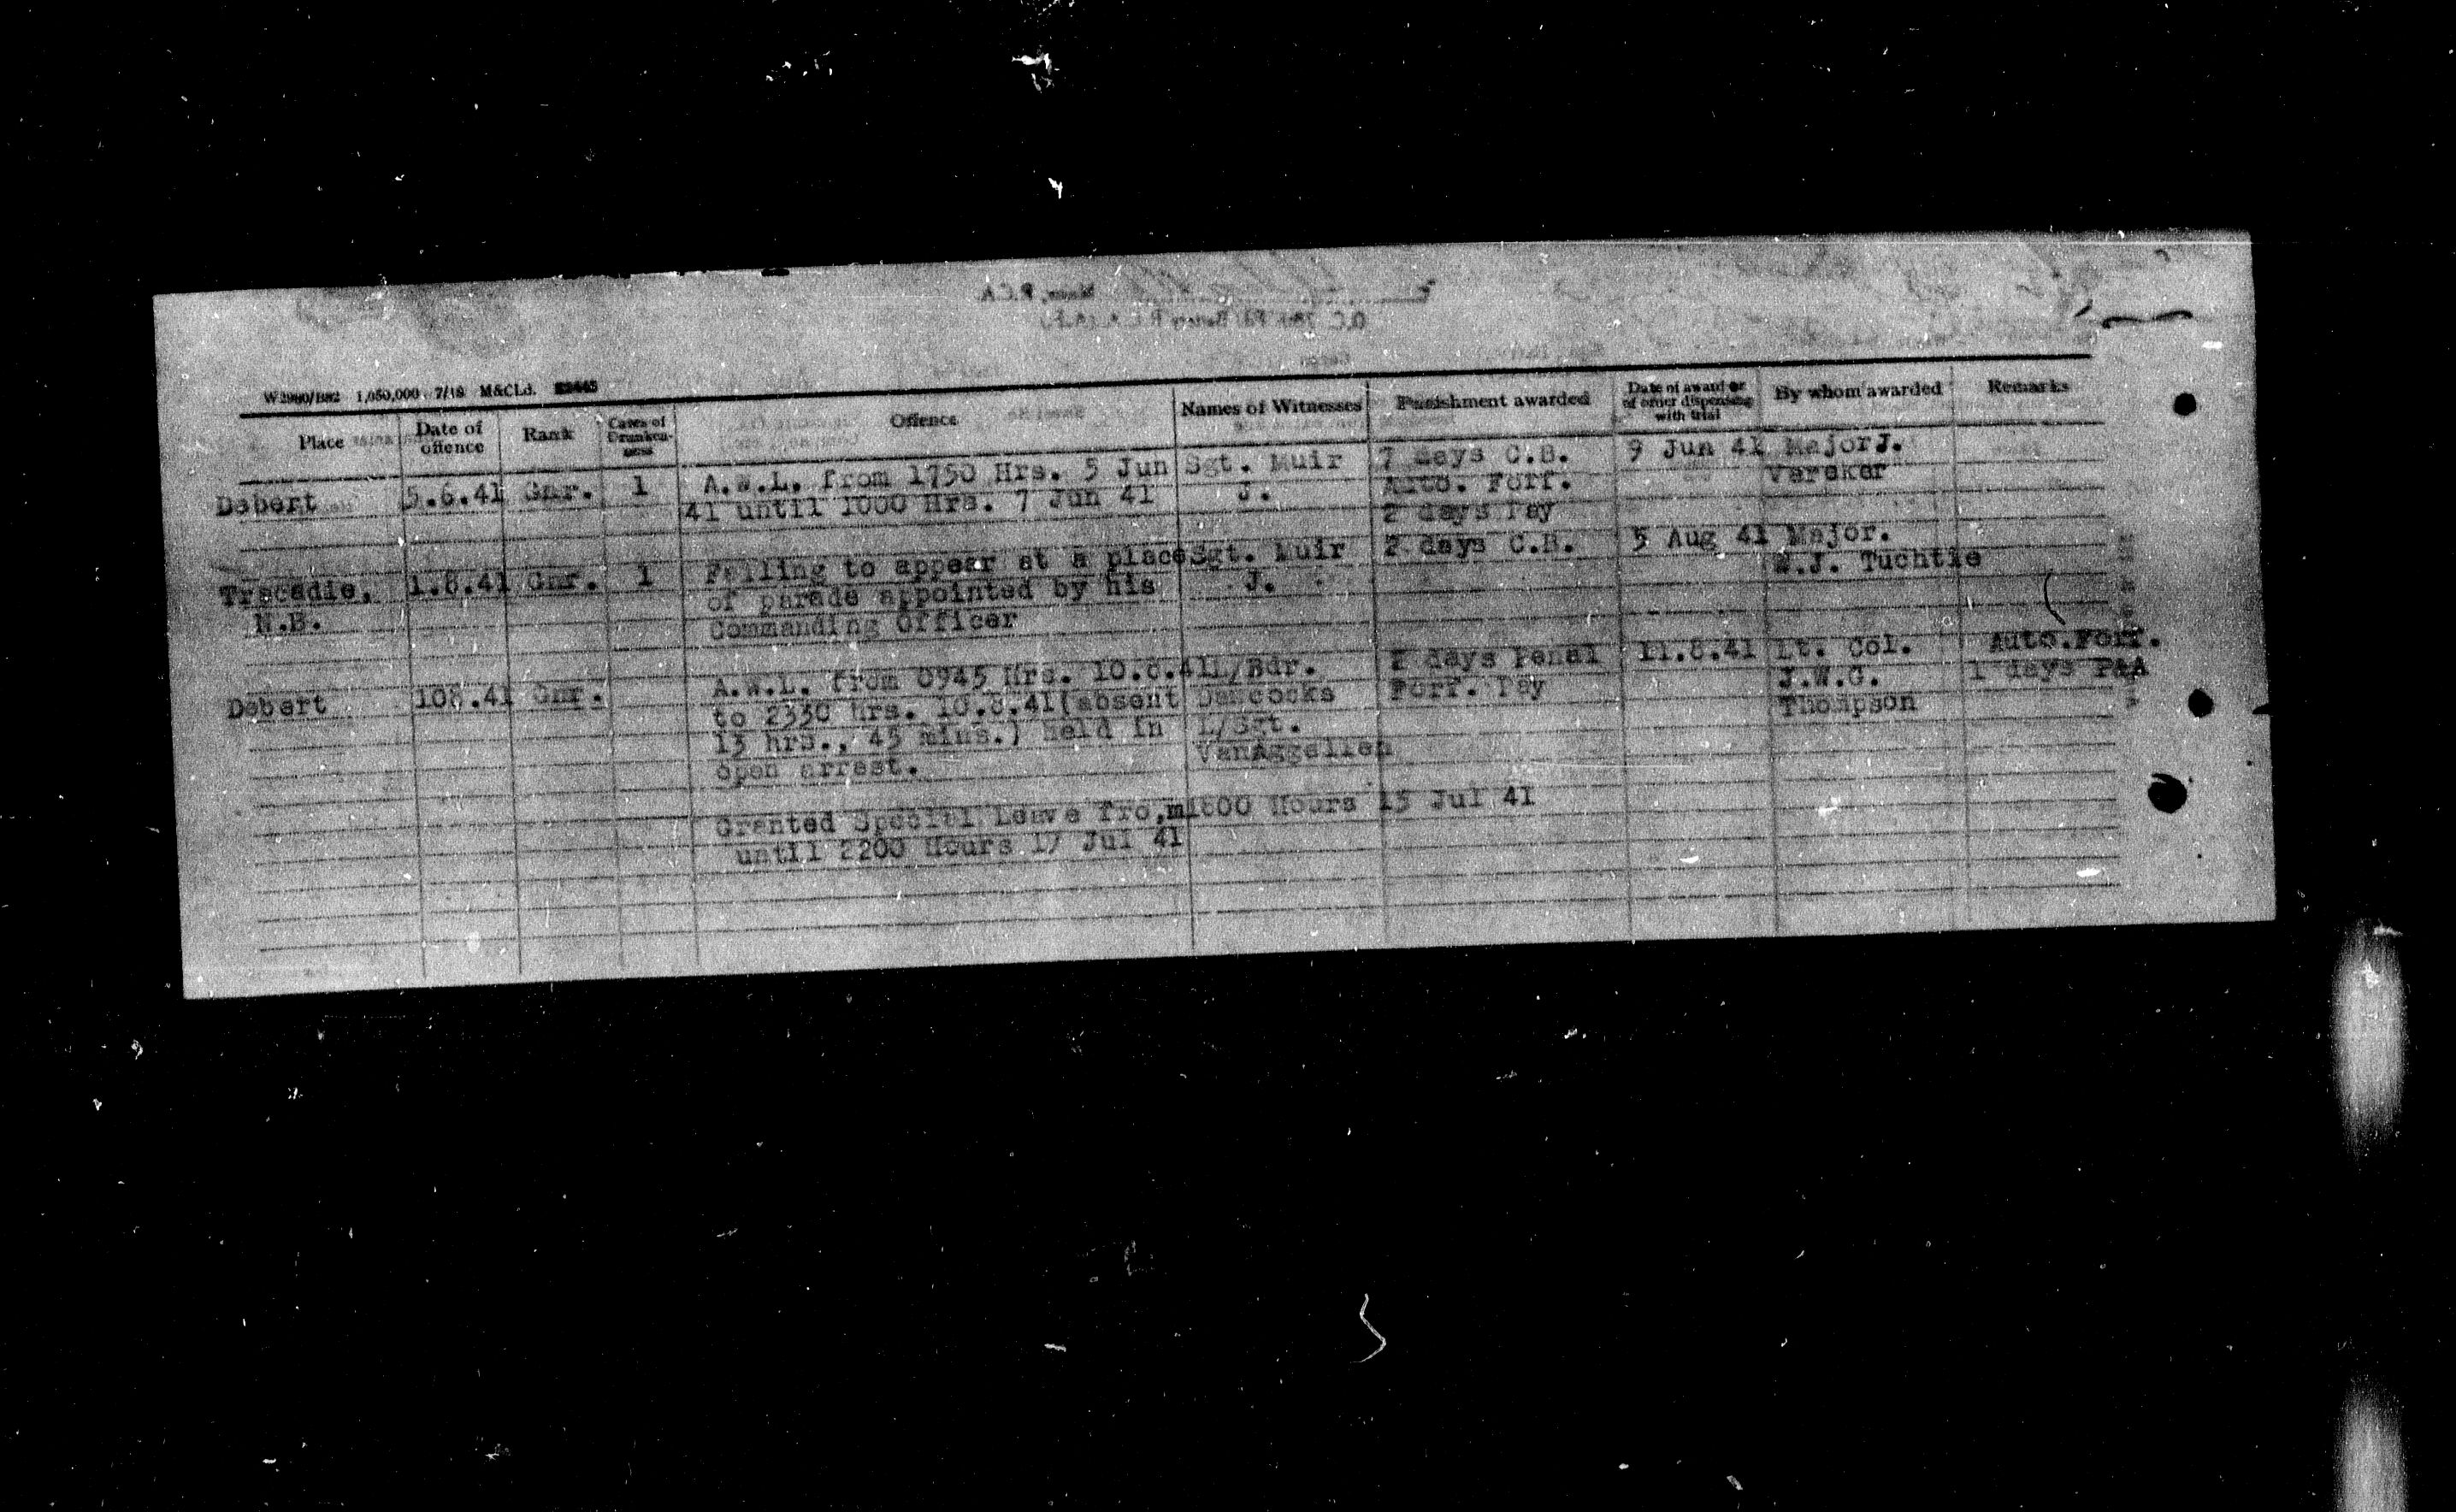 W2900/B82 1,050,000 7/18 M&CLd.
Place Date of offence Rank Cases of Drunkenness Offence Names of Witnesses Punishment awarded Date of award or of order dispensing with trial By whom awarded Remarks
Debert 5.6.41 Gnr. 1 A.W.L. from 1750 Hrs. 5 Jun Sgt. Muir 7 days C.B. 9 Jun 41 Major J.
41 until 1000 Hrs. 7 Jun 41 J. Auto. Forf. Vereker
2 days Pay
Tracadie, 1.8.41 Gnr. 1 Failing to appear at a place Sgt. Muir 2 days C.B. 5 Aug 41 Major.
N.B. of parade appointed by his J. W.J. Tuchtie
Commanding Officer
Debert 108.41 Gnr. A.W.L. from 0945 Hrs. 10.8.41 L/Bdr. days Penal 11.8.41 Lt. Col. Auto.Forf.
to 2330 hrs. 10.8.41(absent Forf. Pay J.W.G. 1 days P&A
13 hrs., 45 mins.) held in L/Sgt. Thompson
open arrest. VanAggellen
Granted Special Leave fro,m1800 Hours 15 Jul 41
until 2200 Hours 17 Jul 41